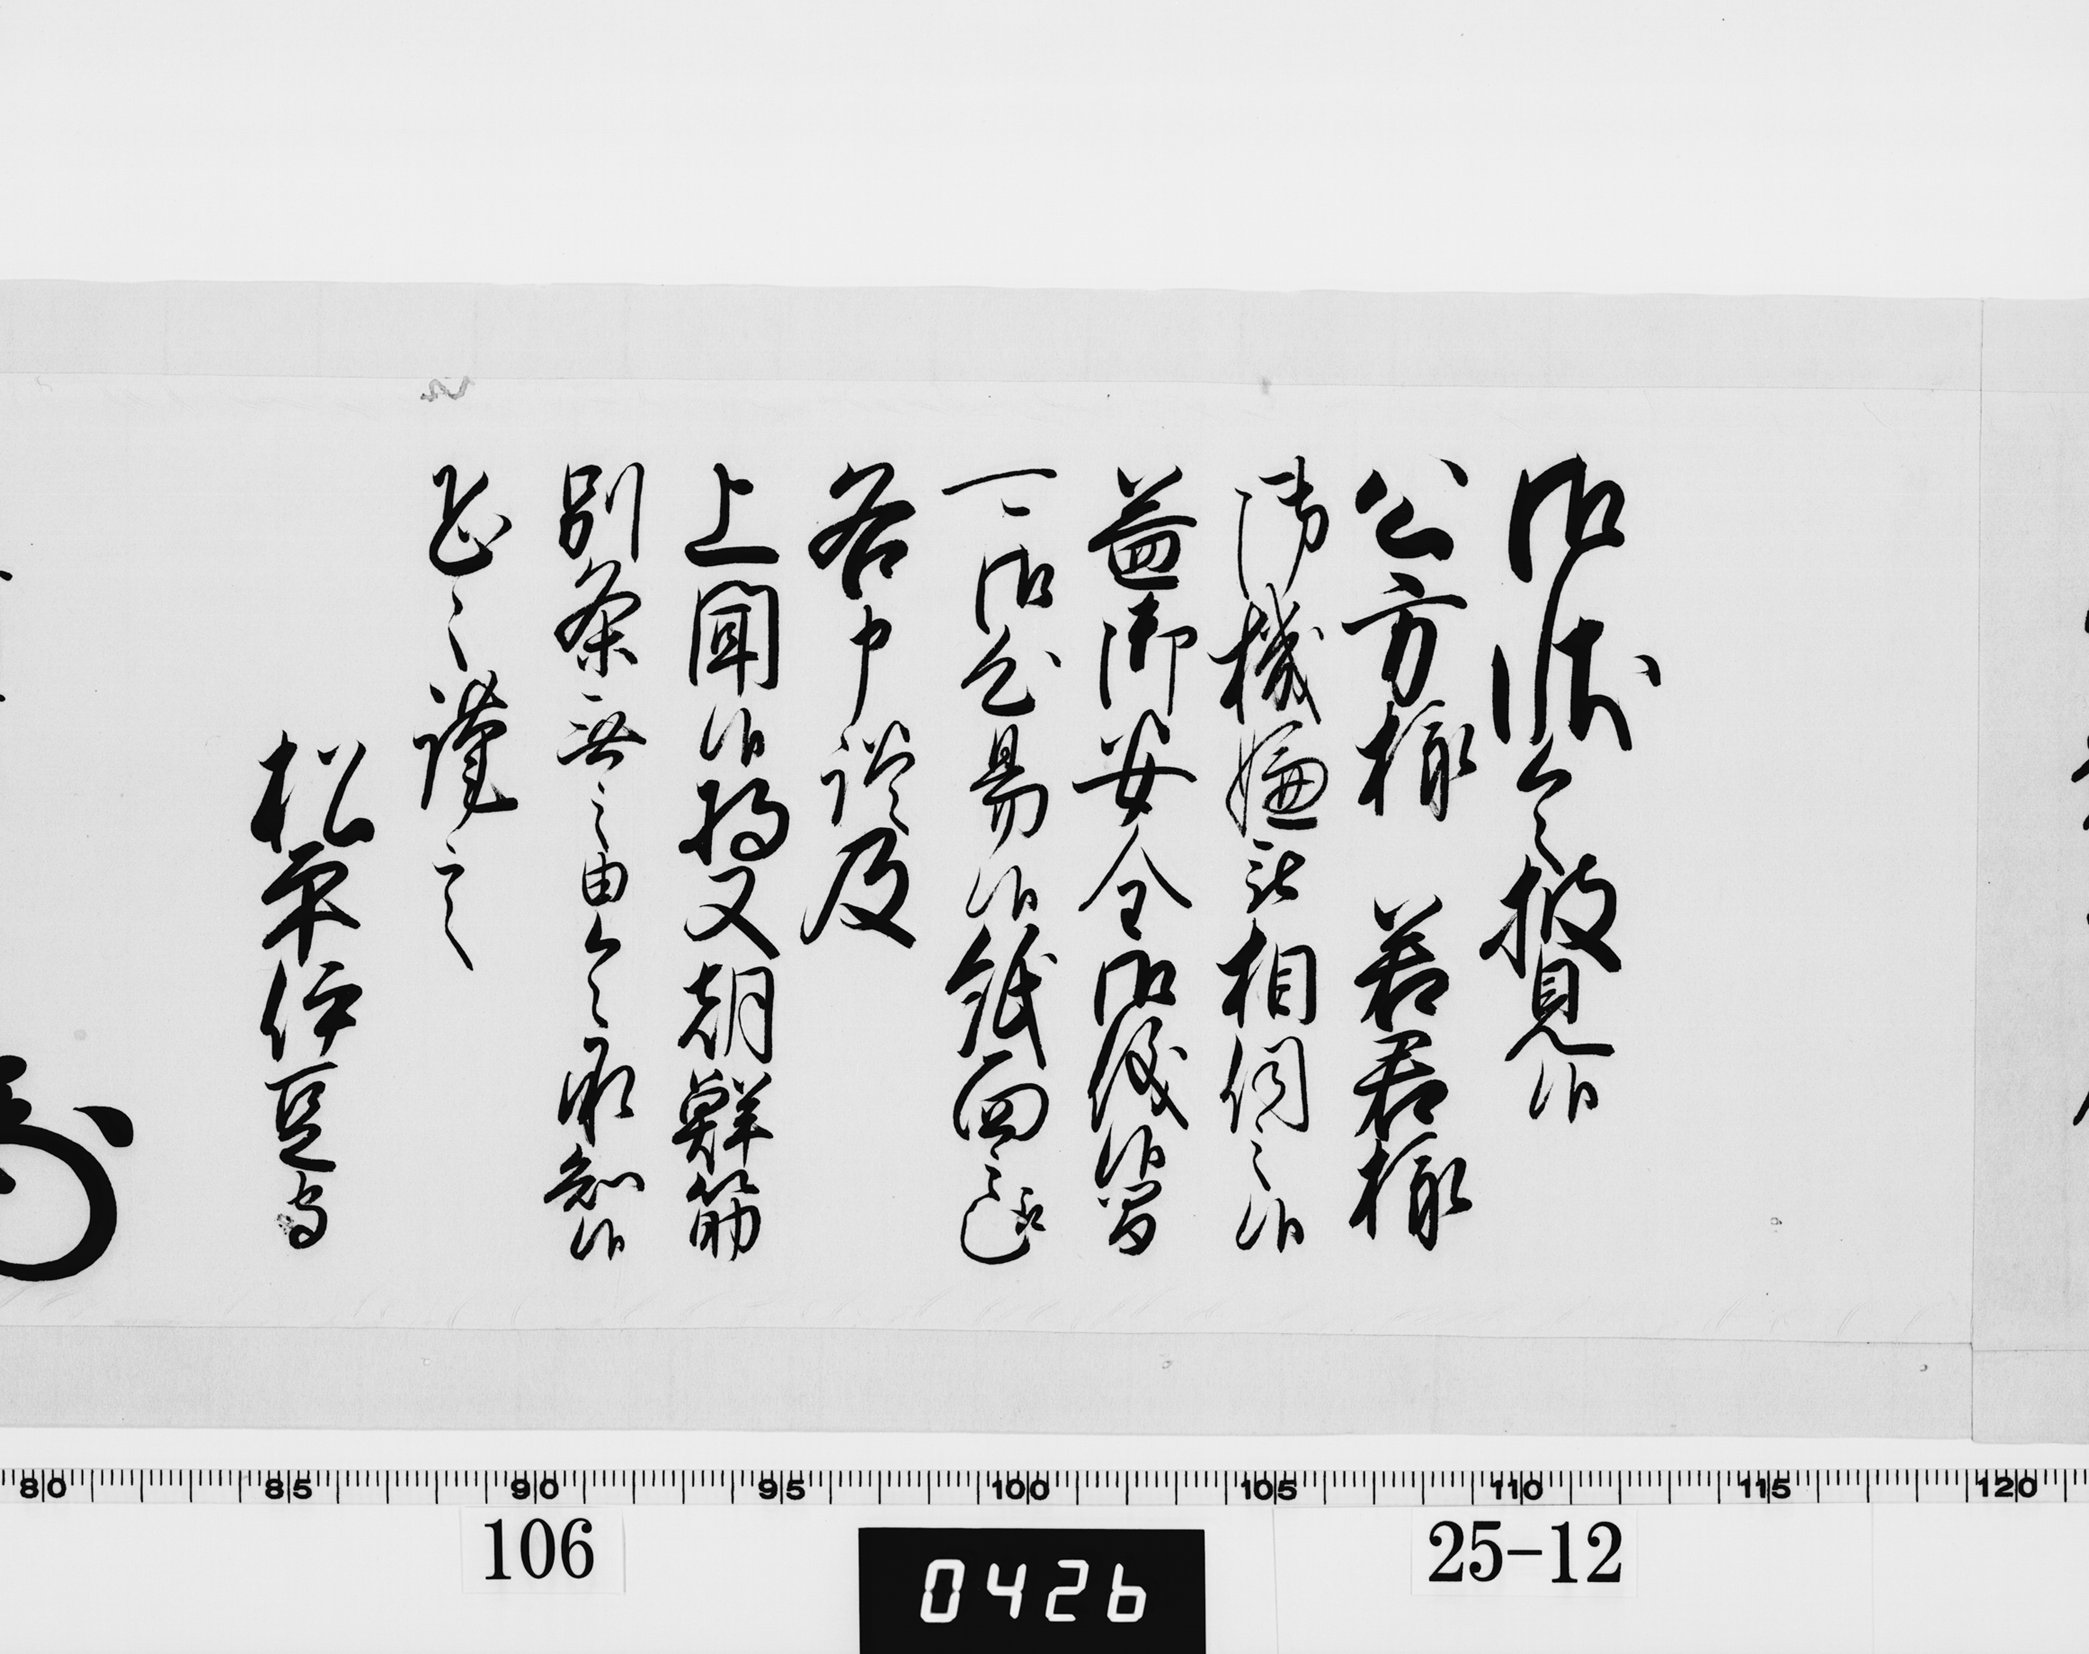 御状令披見候
公方様 若君様
御機嫌被相伺之候
益御安全御儀候間
可御心易候紙面之趣
各申談及
上聞候将又朝鮮筋
別条無之由令承知候
恐々謹言
松平伊豆守
80 85 90 95 100 105 110 115 120
106
0426
25-12